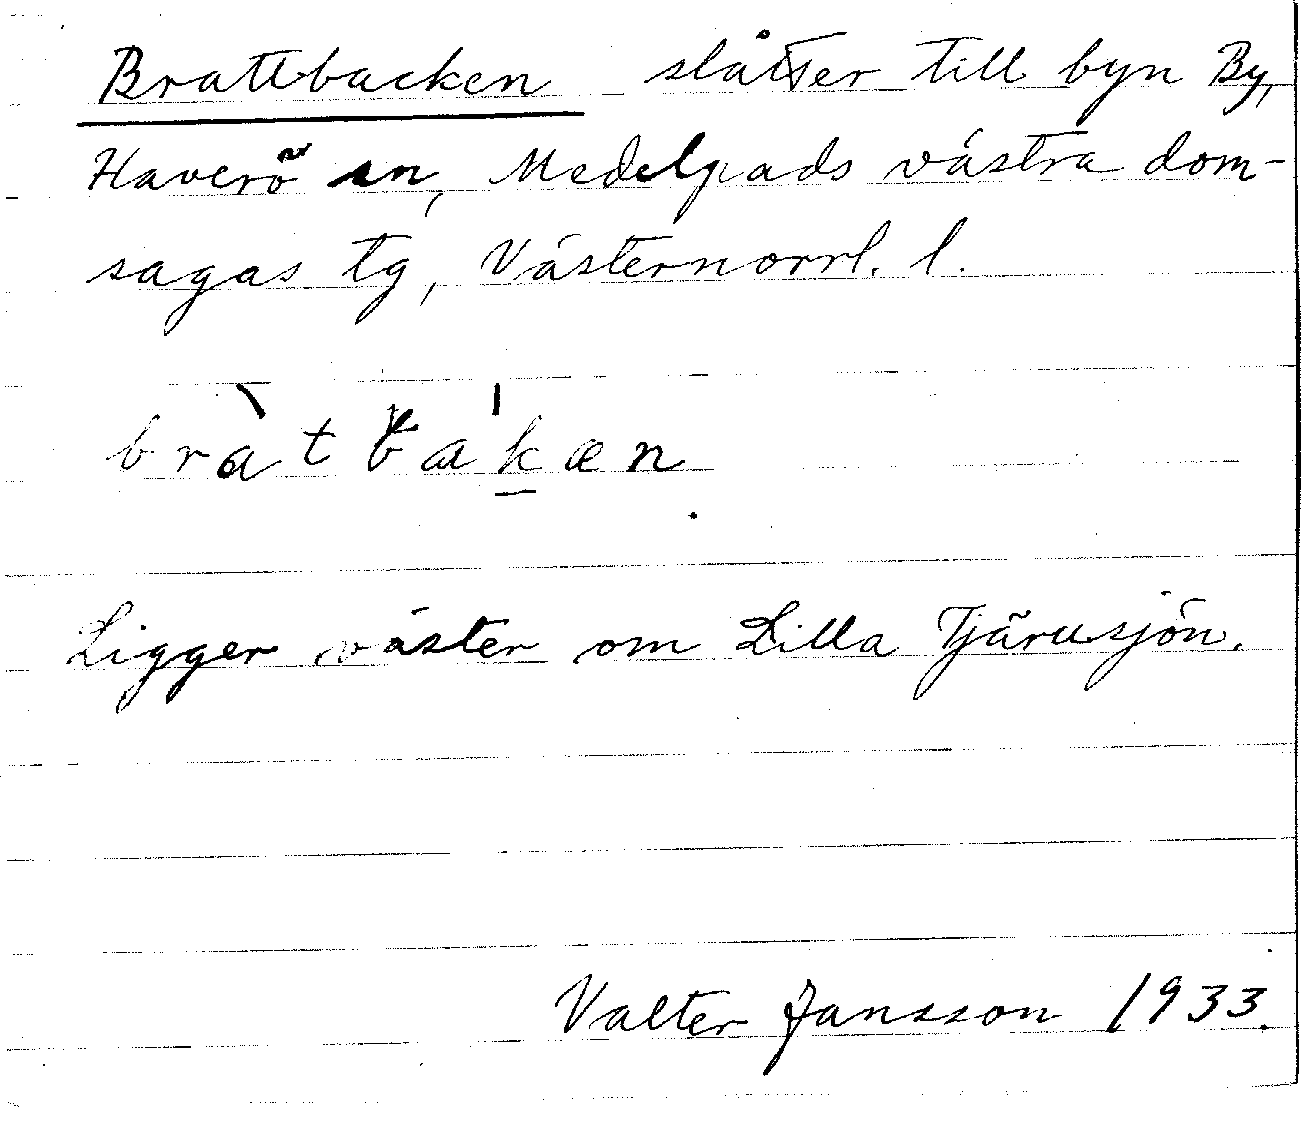 Brattbacken slåtter till byn By,
Haverö sn, Medelpads västra dom-
sagas tg, Västernorrl. l.
bràtbak̲æn
Ligger väster om Lilla Tjärusjön.
Valter Jansson 1933.